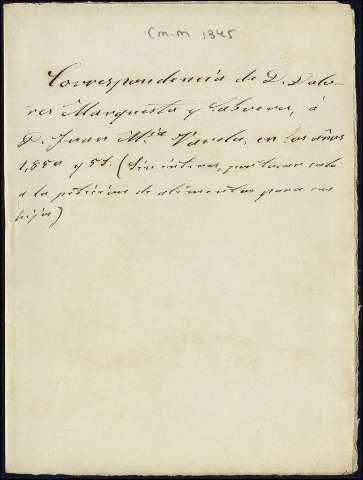 CM-M 1345
Correspondencia de D. Dolo-
res Marquesta y Cabrera, á
D. Juan M.ª Varela, en los años
1,850 y 51. (Sin interes, por tocar solo
a la peticion de alimentos para sus
hijos)